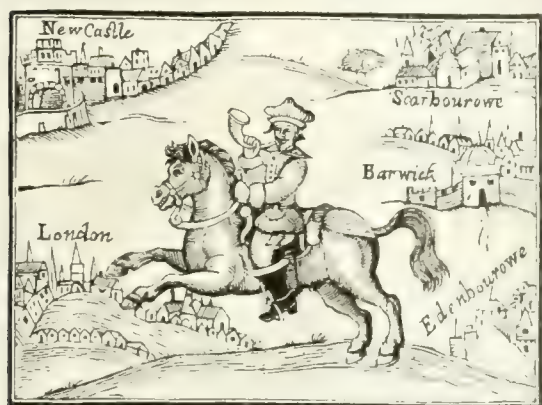 NewCastle
Scarbourowe
Barwick
London
Edenbourowe